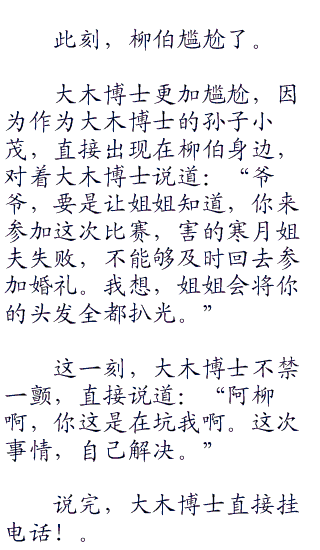 此刻，柳伯尴尬了。
大木博士更加尴尬，因
为作为大木博士的孙子小
茂，直接出现在柳伯身边，
对着大木博士说道：“爷
爷，要是让姐姐知道，你来
参加这次比赛，害的寒月姐
夫失败，不能够及时回去参
加婚礼。我想，姐姐会将你
的头发全都扒光。”
这一刻，大木博士不禁
一颤，直接说道：“阿柳
啊，你这是在坑我啊。这次
事情，自己解决。”
说完，大木博士直接挂
电话！。